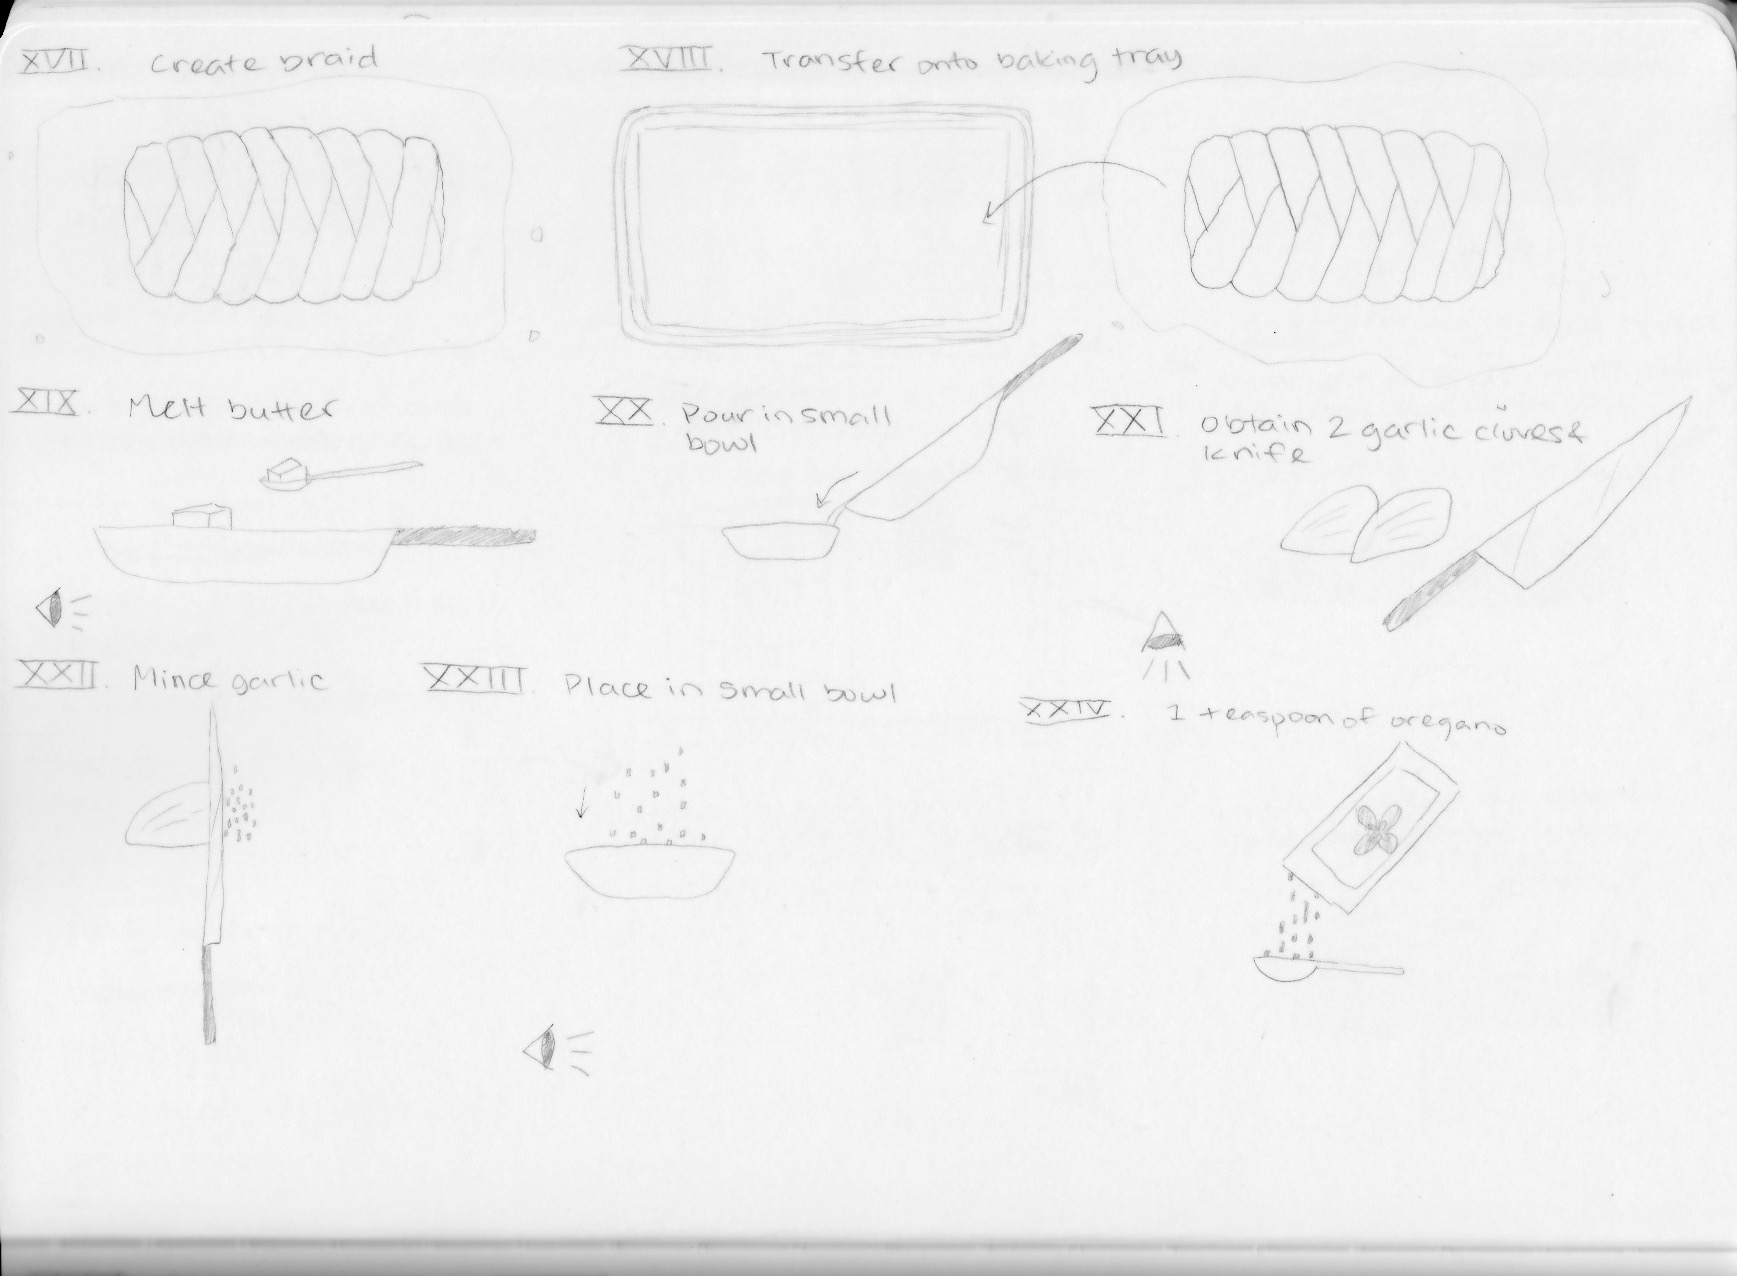 XVII. Create braid
XVIII. Transfer onto baking tray
XIX. Melt butter
XX. Pour in small
bowl
XXI. Obtain 2 garlic cloves &
knife
XXII. Mince garlic
XXIII. Place in small bowl
XXIV. 1 teaspoon of oregano